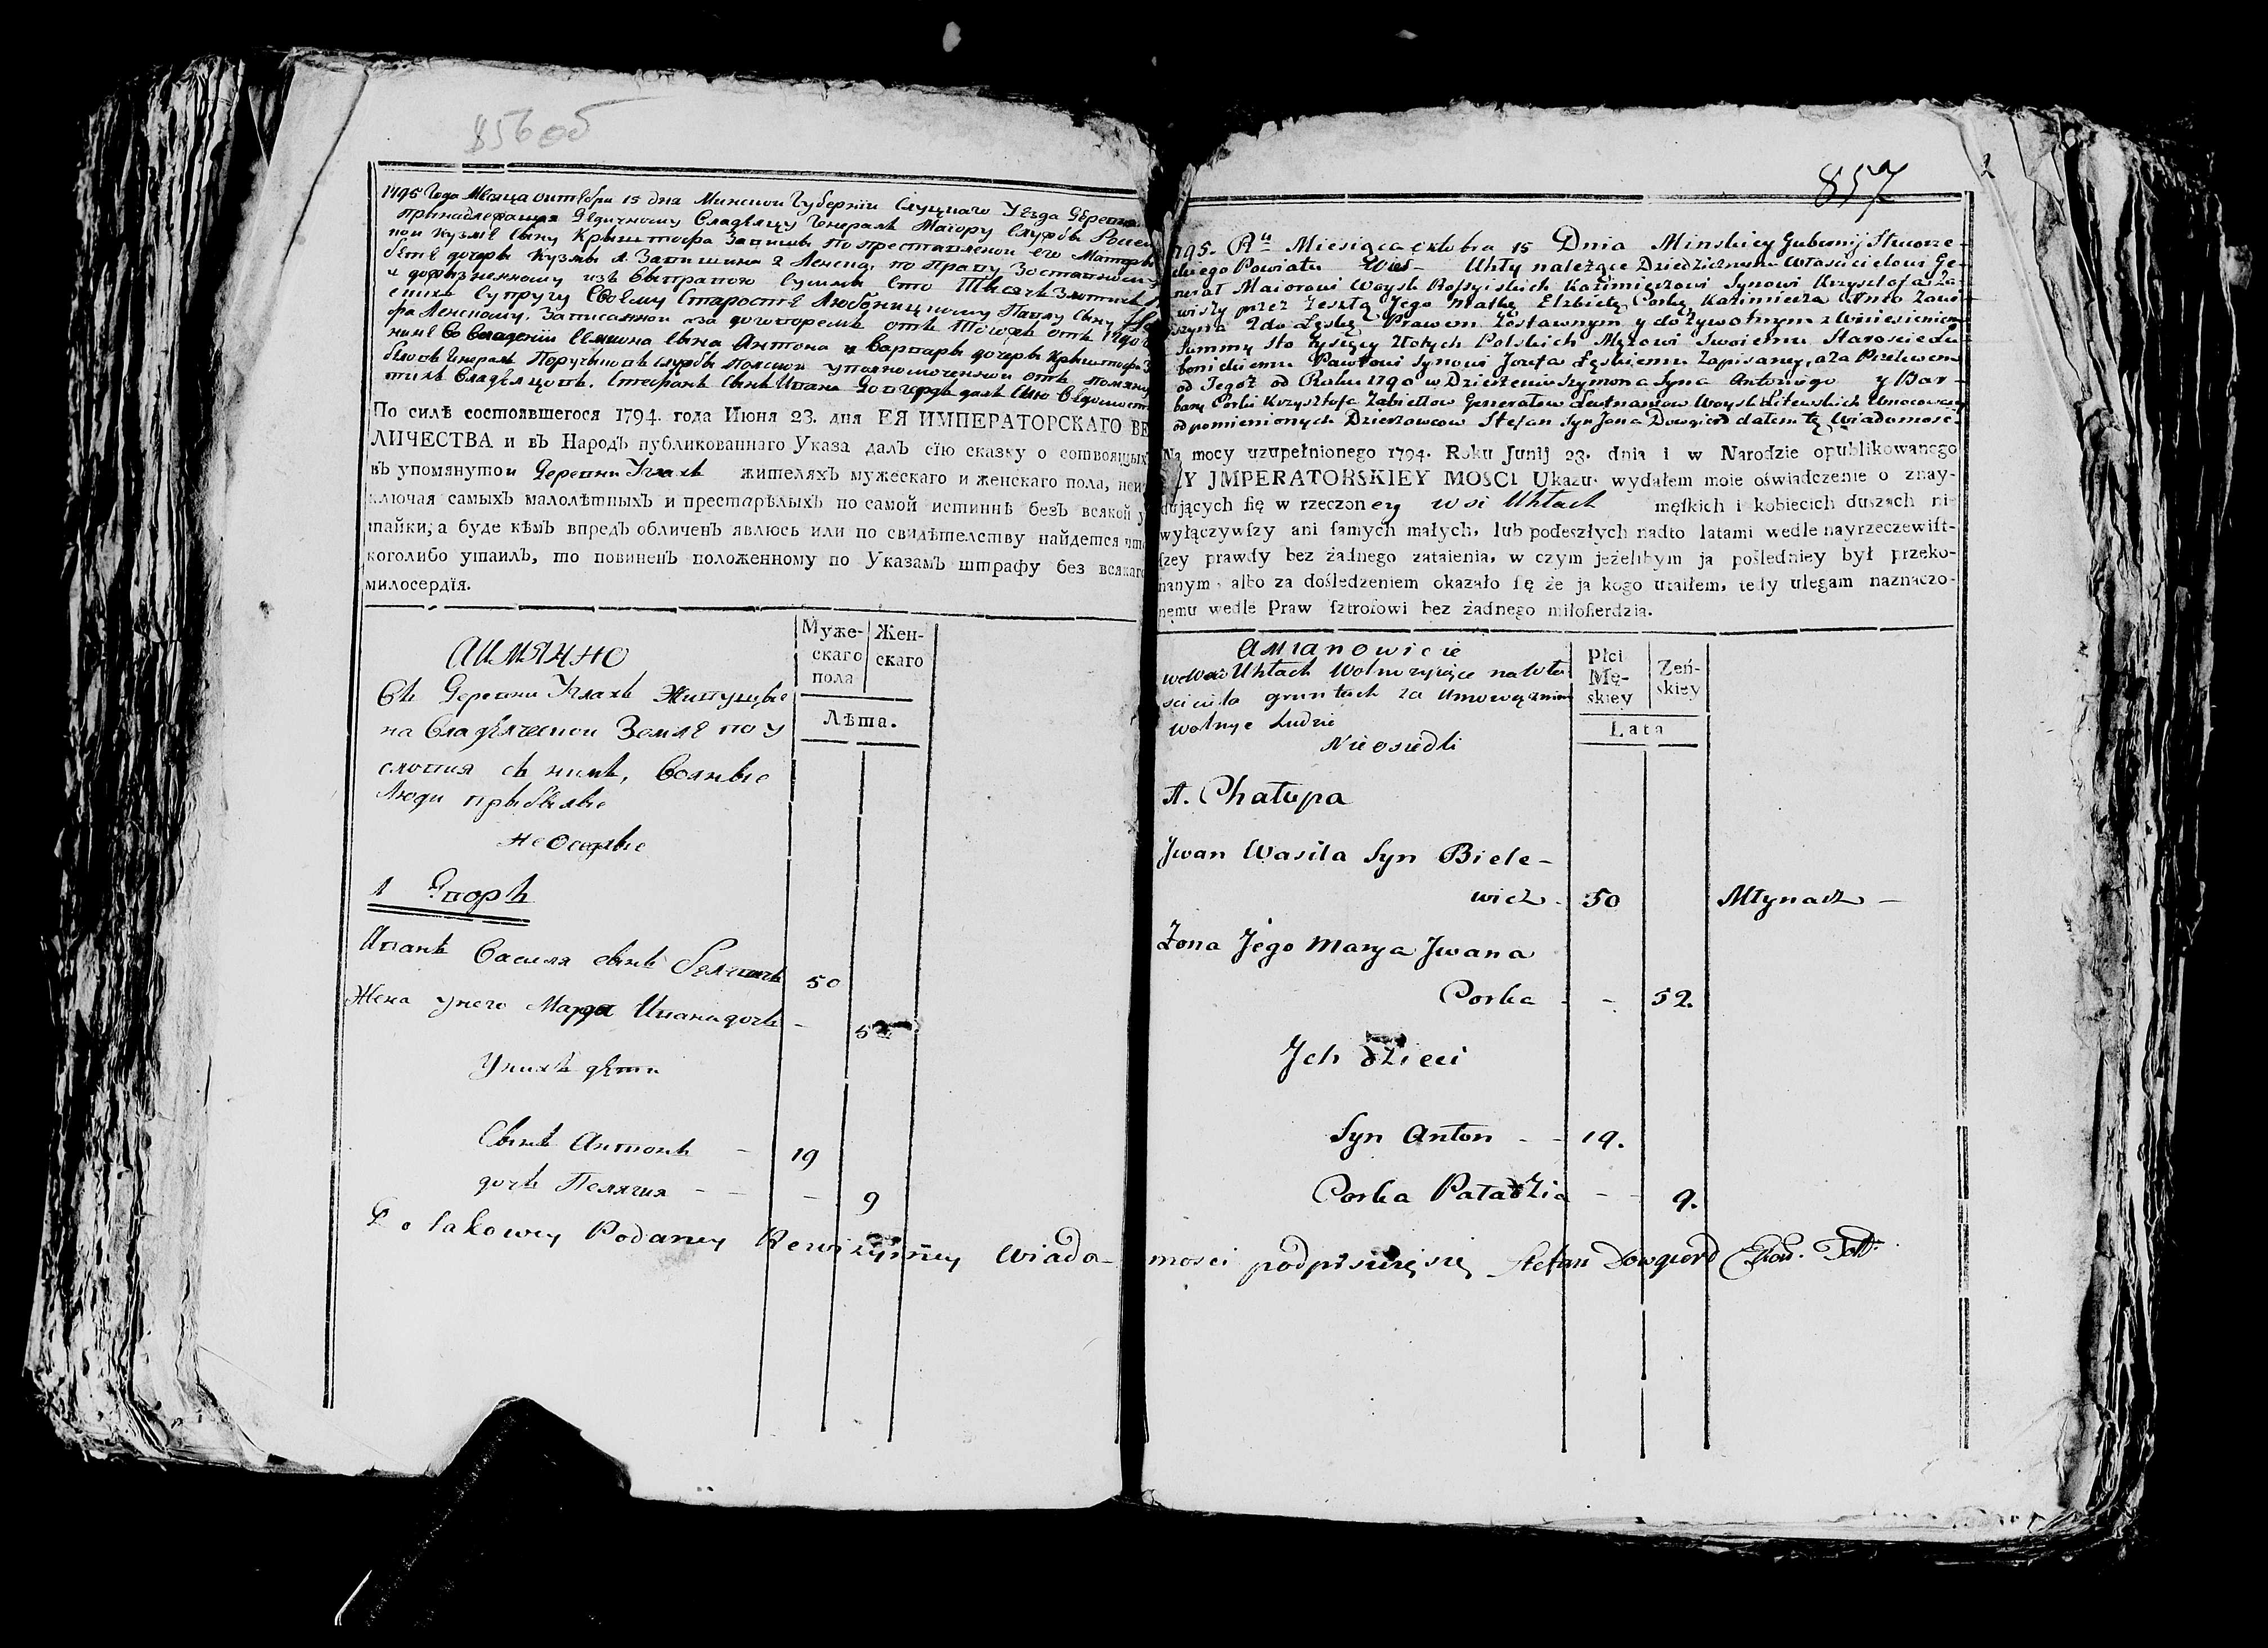 856 об
1795 Года Месяца октебри 15 дня Минской Губернии Слуцкаго Уезда Деревни
принадлежащая Дедичному Владельцу Генералъ Маіору Службы Россий
Кузме сыну Крыштофа Завиши по преставленой его Матеры
дочеры Кузмы 1 Завишина 2 Ленска, по праву Заставному
и дожизненному изъ выправою Суммы сто Тысячъ Златихъ
Супругу Своему Старосте Любоницкому Павлу сыну
Ленскому, Записанной а за договоремъ отъ Тогожъ отъ 1790
Во владении Семиона сына Антона и Варвары дочеры Крыштофа
Генералъ Поручиковъ службы полской уполномоченной отъ помяну
тихъ Владелцовъ. Стефанъ сынъ Ивана Довгердъ далъ сию Ведомость
По силѣ состоявшегося 1794. года Июня 23. дня ЕЯ ИМПЕРАТОРСКАГО ВЕ
ЛИЧЕСТВА и въ Народъ публикованнаго Указа далъ сїю сказку о сотвоящихъ
въ упомянутои Деревни Углахъ жителяхъ мужескаго и женскаго пола, неис
ключая самыхъ малолѣтныхъ и престарѣлыхъ по самой истиннѣ безъ всякой у
тайки, а буде кѣмъ впредъ обличенъ явлюсь или по свидѣтелству найдется что
коголибо утаилъ, то повиненъ положенному по Указамъ штрафу без всякаго
милосердїя.
АИМЯННО
Въ Деревни Углахъ Живущые
на Владелческой Земле по у
словия съ нимъ, Волные
Люди прыбылые
Не Оседлые
Муже-
скаго
пола
Жен-
скаго
Лѣта.
1 Дворъ
Иванъ Василя сынъ Белевичъ 50
Жена у него Марья Ивана дочъ - 52
У нихъ дети
Сынъ Антонъ - 19
дочъ Пелягия - - - 9
Po takowey Podaney Rewizyiney Wiado-
857
2
1795. Rku Miesiąca oktobra 15 Dnia Minskiey Gubernij Słucze-
ckiego Powiatu Wieś Uhły należące Dziedzicznemu właścicielowi Ge-
nerał Maiorowi Woysk Rossyiskich Kazimierzowi Synowi Krzysztofa Za-
wiszy przez Zeszłą Jego Matkę Elżbietę Corkę Kazimierza Imo Zawi
szyna 2do Łęską Prawem Zastawnym y dożywotnym z wniesieniem
Summy Sto tysięcy Złotych Polskich Mężowi Swoiemu Staroscie Lu
bonickiemu Pawłowi Synowi Jozefa Łęskiemu Zapisaney, a Za Przelewem
od Tegoż od Roku 1790 w Dzierżeniu Szymona Syna Antoniego y Bar-
bary Corki Krzysztofa Zabiełłow Generałow Leutnantow Woysk Litewskich Umocowany
od pomienionych Dzierżawcow Stefan Syn Jana Dowgierd dałem tę Wiadomość.
Na mocy uzupełnionego 1794. Roku Junij 23. dnia i w Narodzie opublikowanego
EY JMPERATORSKIEY MOSCI Ukazu, wydałem moie oświadczenie o znay-
dujących ſię w rzeczoney wsi Uhłach męſkich i kobiecich duszach nie
wyłączywſzy ani ſamych małych, lub podeszłych nadto latami wedle nayrzeczewiſt-
ſzey prawdy bez żadnego zataienia, w czym jeżelibym ja pośledniey był przeko-
nanym, albo za dośledzeniem okazało ſię że ja kogo utaiłem, tedy ulegam naznaczo-
nemu wedle Praw ſztrofowi bez żadnego miłoſierdzia.
AMIANOWICIE
we wsi Uhłach Wolno żyiące na Wła
sciciela gruntach za umową z nim
wolnye Ludzie
Nieosiedli
Płci
Mę-
skiey
Żeń-
skiey
Lata
1. Chałupa
Jwan Wasila Syn Biele-
wicz - 50 Młynarz -
Żona Jego Marya Jwana
Corka - - 52.
Jch dzieci
Syn Anton - - 19.
Corka Paładzia - - 9.
mosci podpisuię się Stefan Dowgierd